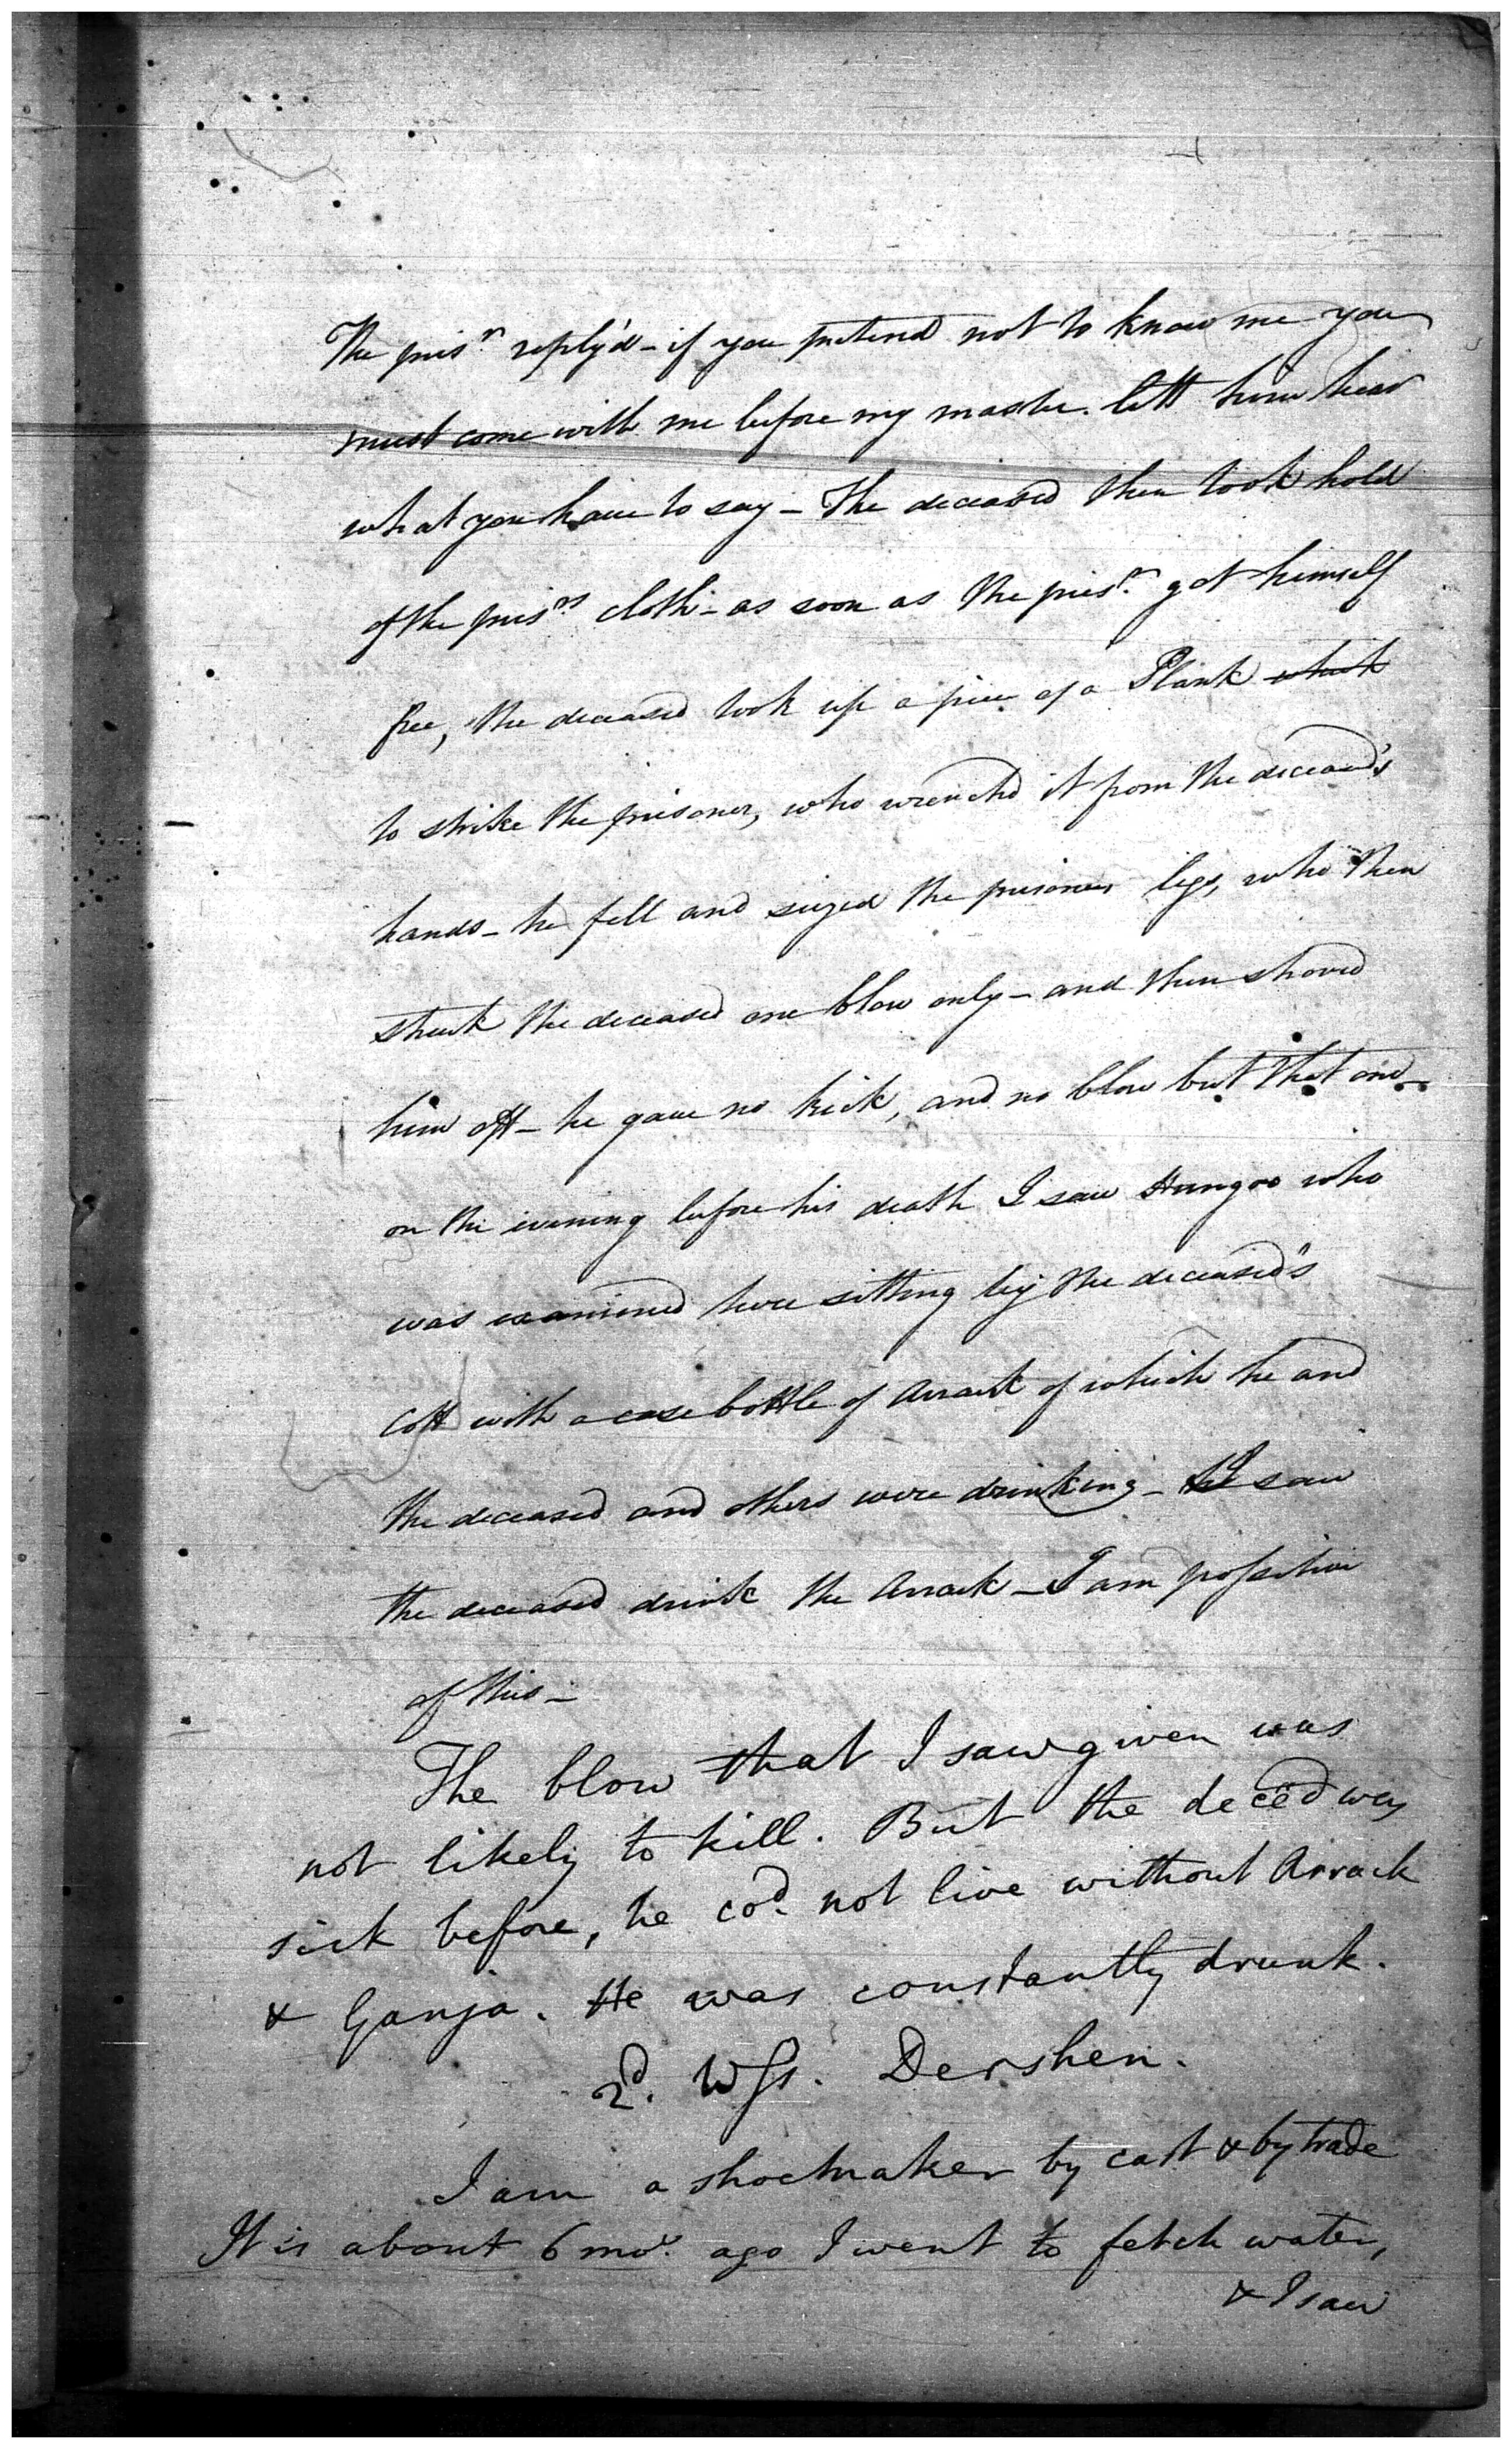 The pris.r reply'd - if you pretend not to know me you
must come with me before my master. lett him hear
what you have to say - The deceased then took hold
of the pris.rs cloth - as soon as the pris.r got himself
free, the deceased took up a piece of a Plank which
to strike the prisoner, who wrenched it from the deceased's
hands - he fell and seized the prisoners legs, who then
struck the deceased one blow only - and then shoved
him off - he gave no kick, and no blow but that one -
on the evening before his death I saw Hungoo who
was examined here sitting by the deceased's
cott with a case bottle of Arrack of which he and
the deceased and others were drinking - I saw
the deceased drink the Arrack - I am possitive
of this -
The blow that I saw given was
not likely to kill. But the deced was
sick before, he cod. not live without Arrack
& Ganja. He was constantly drunk.
2d. Wss. Dershen.
I am a shoemaker by cast & by trade
It is about 6 mos. ago I went to fetch water,
& I saw